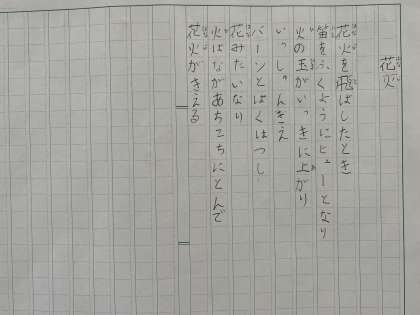 花火
花火を飛ばしたとき
笛をふくようにヒューとなり
火の玉がいっきに上がり
いっしゅんきえ
バーンとばくはつし
花みたいなり
火ばながあちこちにとんで
花火がきえる